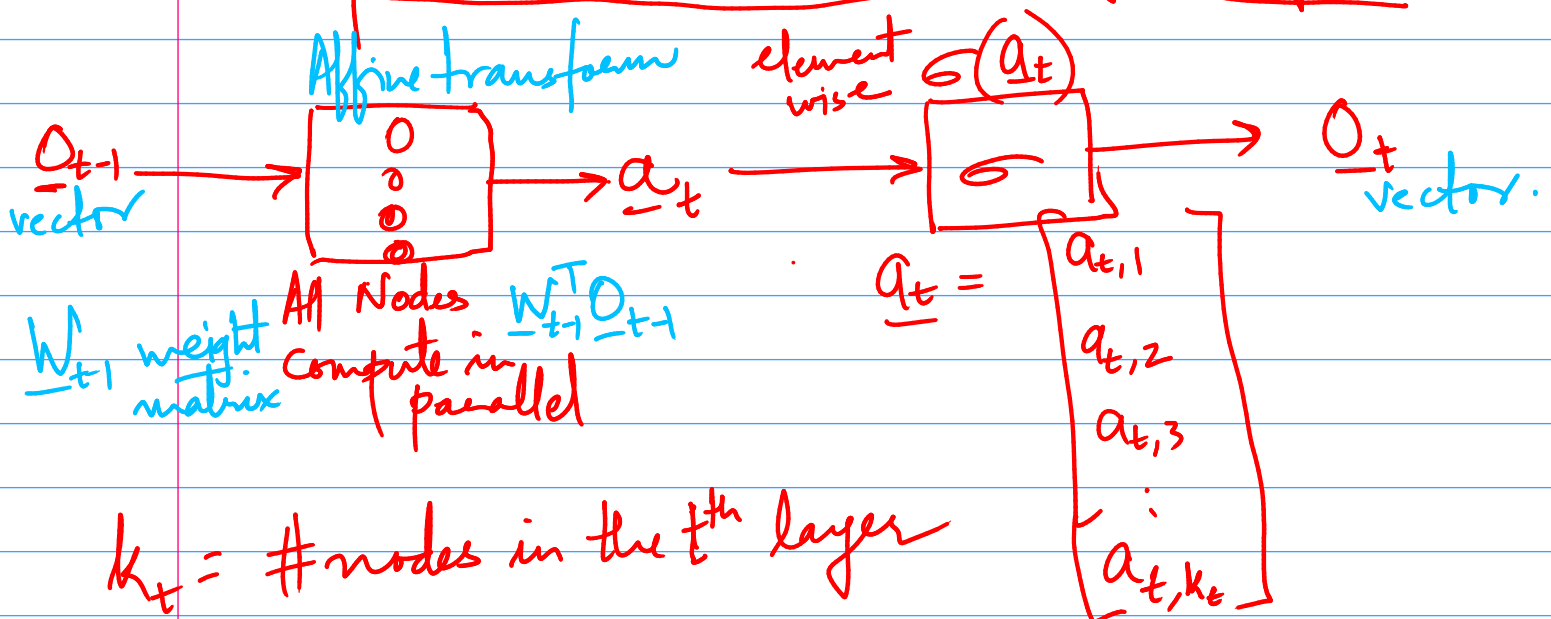 Affine transform
element
wise
σ(a_t)
O_{t-1}
vector
a_t
σ
O_t
vector.
W_{t-1} weight
matrix
All Nodes
compute in
parallel
W^T_{t-1} O_{t-1}
a_t =
a_{t,1}
a_{t,2}
a_{t,3}
:
a_{t,k_t}
k_t = # nodes in the t^{th} layer